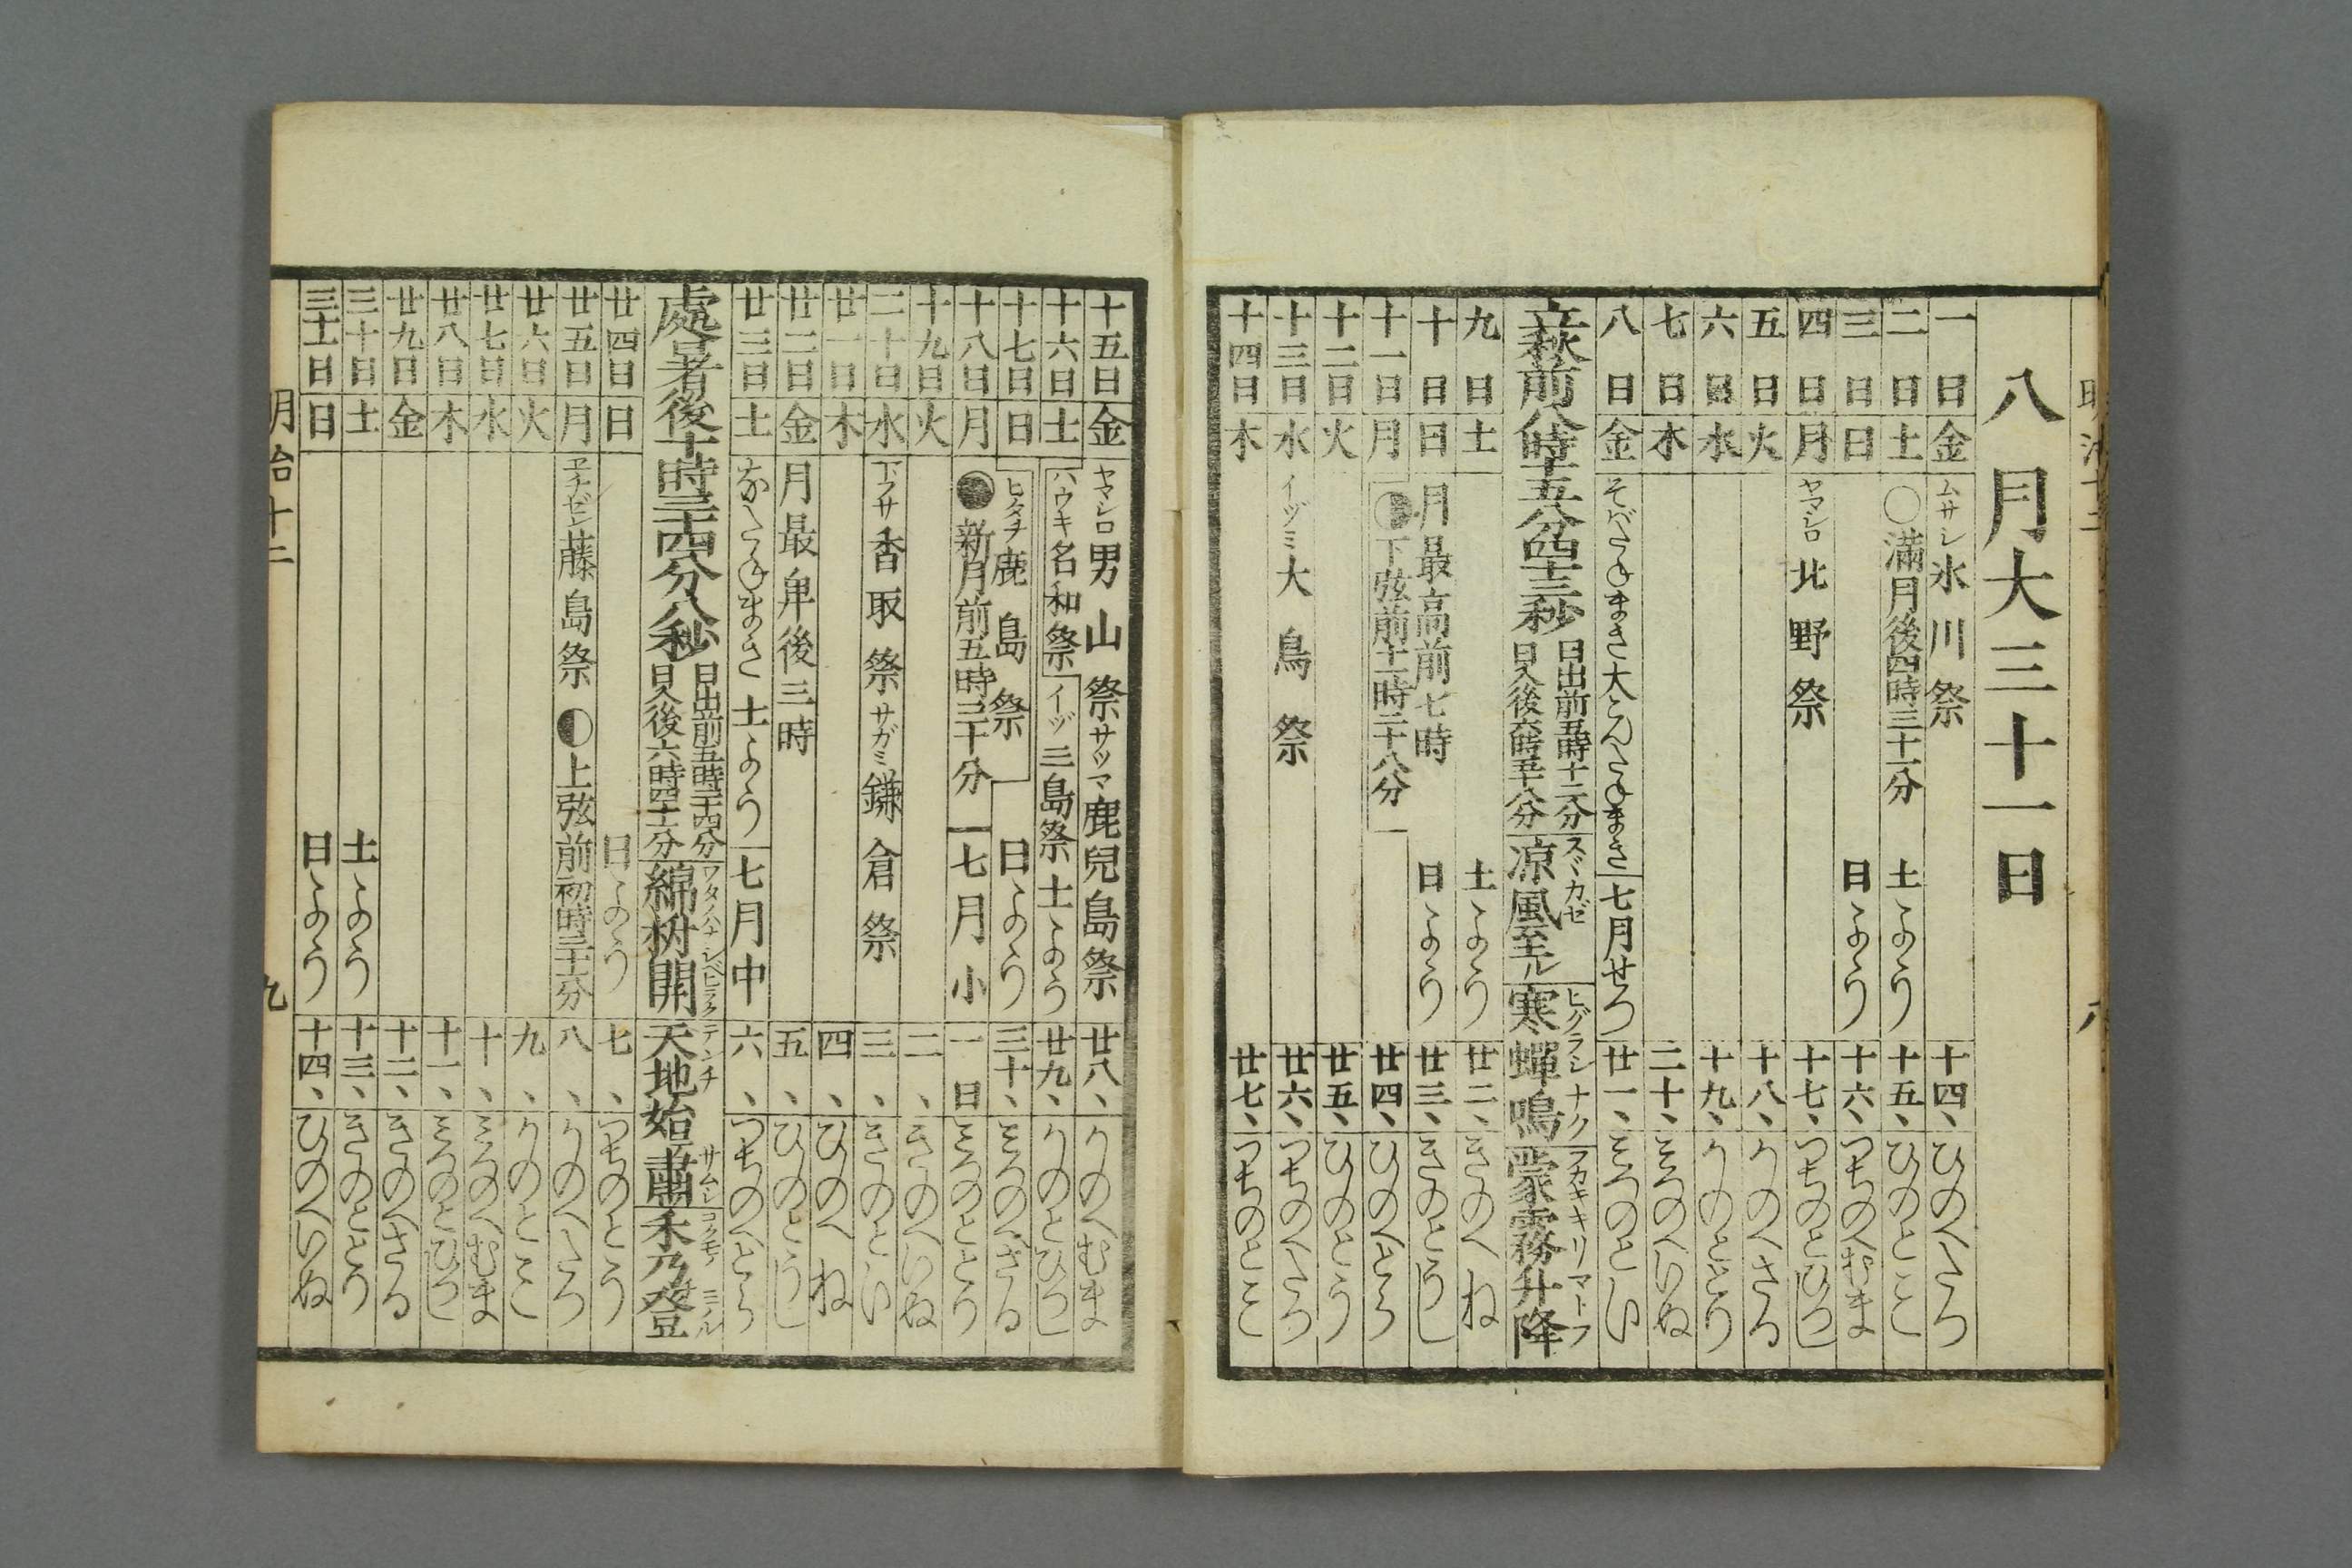 八月大三十一日
一日金 ムサシ氷川祭 十四、ひのへたつ
二日土 ○満月後四時三十一分 土よう 十五、ひのとみ
三日日 日よう 十六、つちのへむま
四日月 ヤマシロ北野祭 十七、つちのとひつし
五日火 十八、かのへさる
六日水 十九、かのととり
七日木 二十、みつのへいぬ
八日金 七月せつ 廿一、みつのとい
立秋前八時十五分四十三秒 日出前五時十二分 日入後六時五十八分 涼風至ル スヾカゼ 寒蟬鳴 ヒグラシナク 蒙霧升降 フカキキリマトフ
九日土 土よう 廿二、きのへね
十日日 月最高前七時 日よう 廿三、きのとうし
十一日月 下弦前十一時二十八分 廿四、ひのへとら
十二日火 廿五、ひのとう
十三日水 イヅミ大鳥祭 廿六、つちのへたつ
十四日木 廿七、つちのとみ
十五日金 ヤマシロ男山祭 サツマ鹿兒島祭 廿八、かのへむま
十六日土 ハウキ名和祭 イヅ三島祭 土よう 廿九、かのとひつし
十七日日 ヒタチ鹿島祭 日よう 三十、みつのへさる
十八日月 ●新月前五時三十分 七月小 一日 みつのととり
十九日火 二、きのへいぬ
二十日水 下フサ香取祭 サガミ鎌倉祭 三、きのとい
廿一日木 四、ひのへね
廿二日金 月最卑後三時 五、ひのとうし
廿三日土 土よう 七月中 六、つちのへとら
處暑後十時三十四分八秒 日出前五時二十四分 日入後六時四十一分 綿柎開 ワタノハナシベヒラク 天地始肅 テンチサムシ 禾乃登 コクモノミノル
廿四日日 日よう 七、つちのとう
廿五日月 ヱチゼン藤島祭 ◐上弦前初時三十二分 八、かのへたつ
廿六日火 九、かのとみ
廿七日水 十、みつのへむま
廿八日木 十一、みつのとひつし
廿九日金 十二、きのへさる
三十日土 土よう 十三、きのととり
三十一日日 日よう 十四、ひのへいぬ
明治十二
九